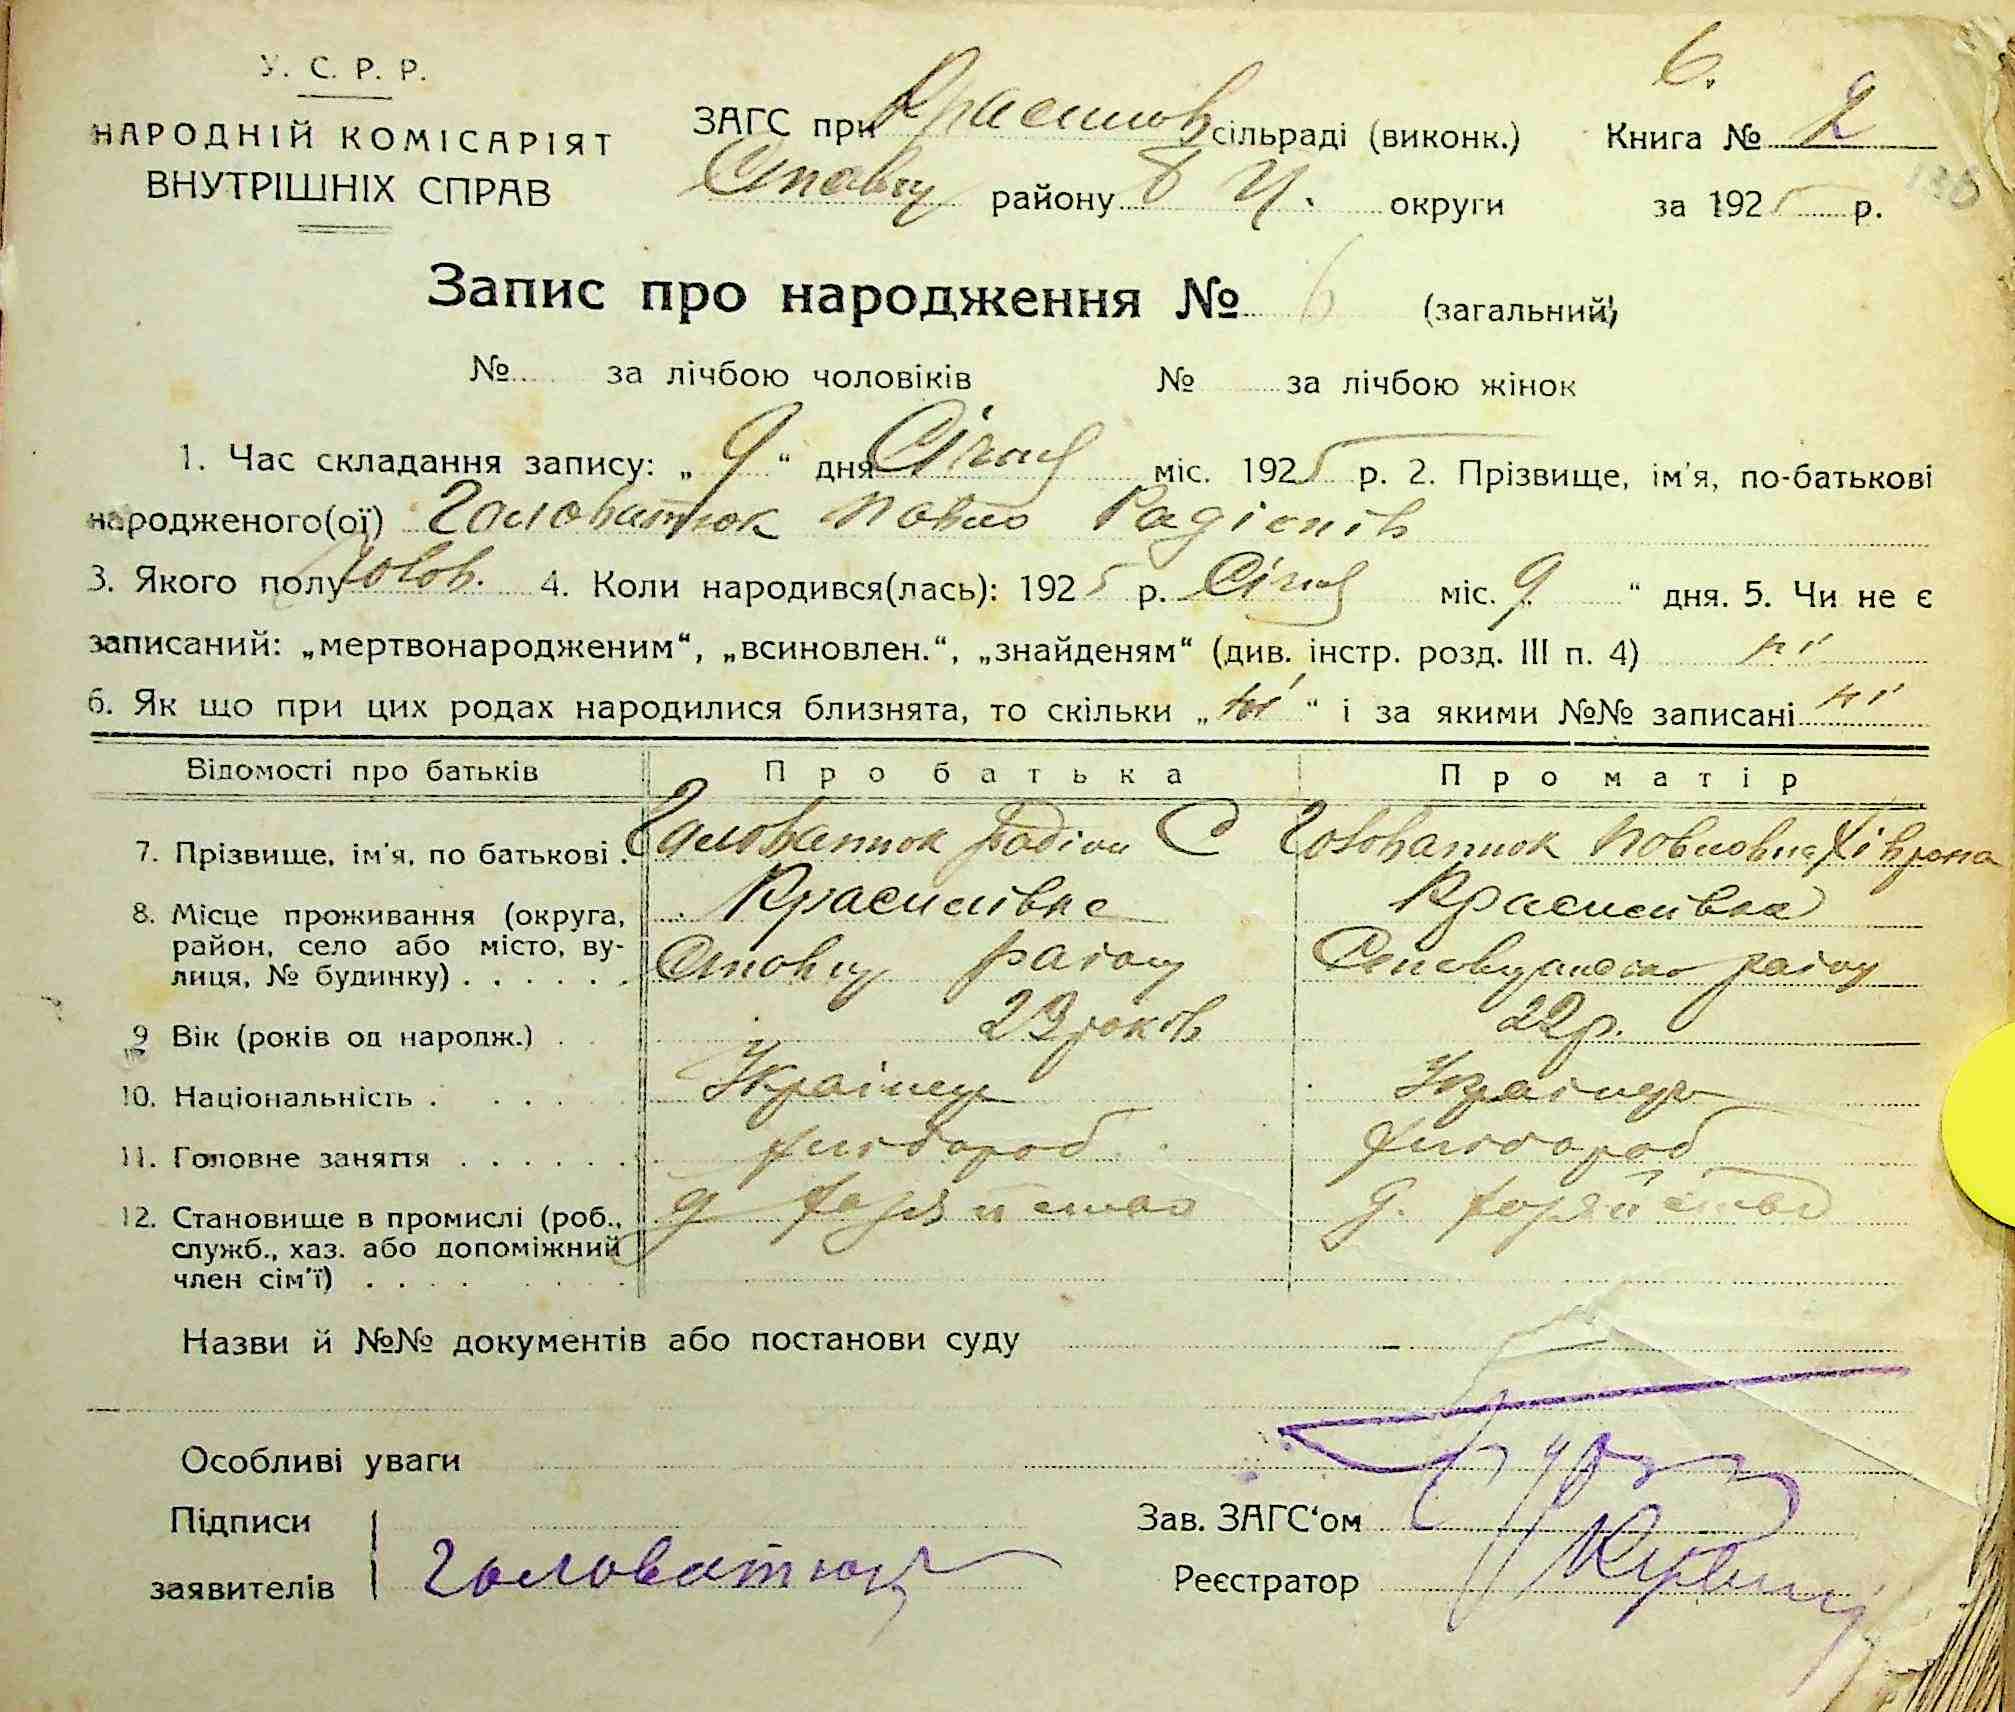 У. С. Р. Р.
НАРОДНІЙ КОМІСАРІЯТ
ВНУТРІШНІХ СПРАВ
6.
ЗАГС при Красилов сільраді (виконк.) Книга № 2
Ставищ району Б Ц. округи за 1925 р.
Запис про народження № 6 (загальний)
№ за лічбою чоловіків № за лічбою жінок
1. Час складання запису: „ 9 “ дня Січня міс. 1925 р. 2. Прізвище, ім'я, по-батькові
народженого(ої) Головатюк Павло Радіонів
3. Якого полу чолов. 4. Коли народився(лась): 1925 р. Січня міс. „ 9 “ дня. 5. Чи не є
записаний: „мертвонародженим“, „всиновлен.“, „знайденям“ (див. інстр. розд. III п. 4) ні
6. Як що при цих родах народилися близнята, то скільки „ ні “ і за якими №№ записані ні
Відомості про батьків Про батька Про матір
7. Прізвище, ім'я, по батькові . Головатюк Радіон С Головатюк Повловна Хіврона
8. Місце проживання (округа, район, село або місто, вулиця, № будинку) . . . . . . Красилівка Красилівка
району району
9 Вік (років од народж.) . 23 років 22 р.
10. Національність . . . . Українец Українец
11. Головне заняття . . . . . . хлібороб хлібороб
12. Становище в промислі (роб., служб., хаз. або допоміжний член сім'ї) . . . .
Назви й №№ документів або постанови суду
Особливі уваги
Підписи
заявителів Головатюк
Зав. ЗАГС'ом
Реєстратор